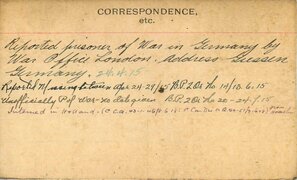 CORRESPONDENCE,
etc.
Reported prisoner of War in Germany by
War Office London. Address Giessen
Germany. 24.4.15
Reported Missing between Apr 24-29/15 B.P. 2Da No 10/13.6.15
Unofficially P of War - no date given B.P. 2Da No 20 - 24.7.15
Interned in Holland